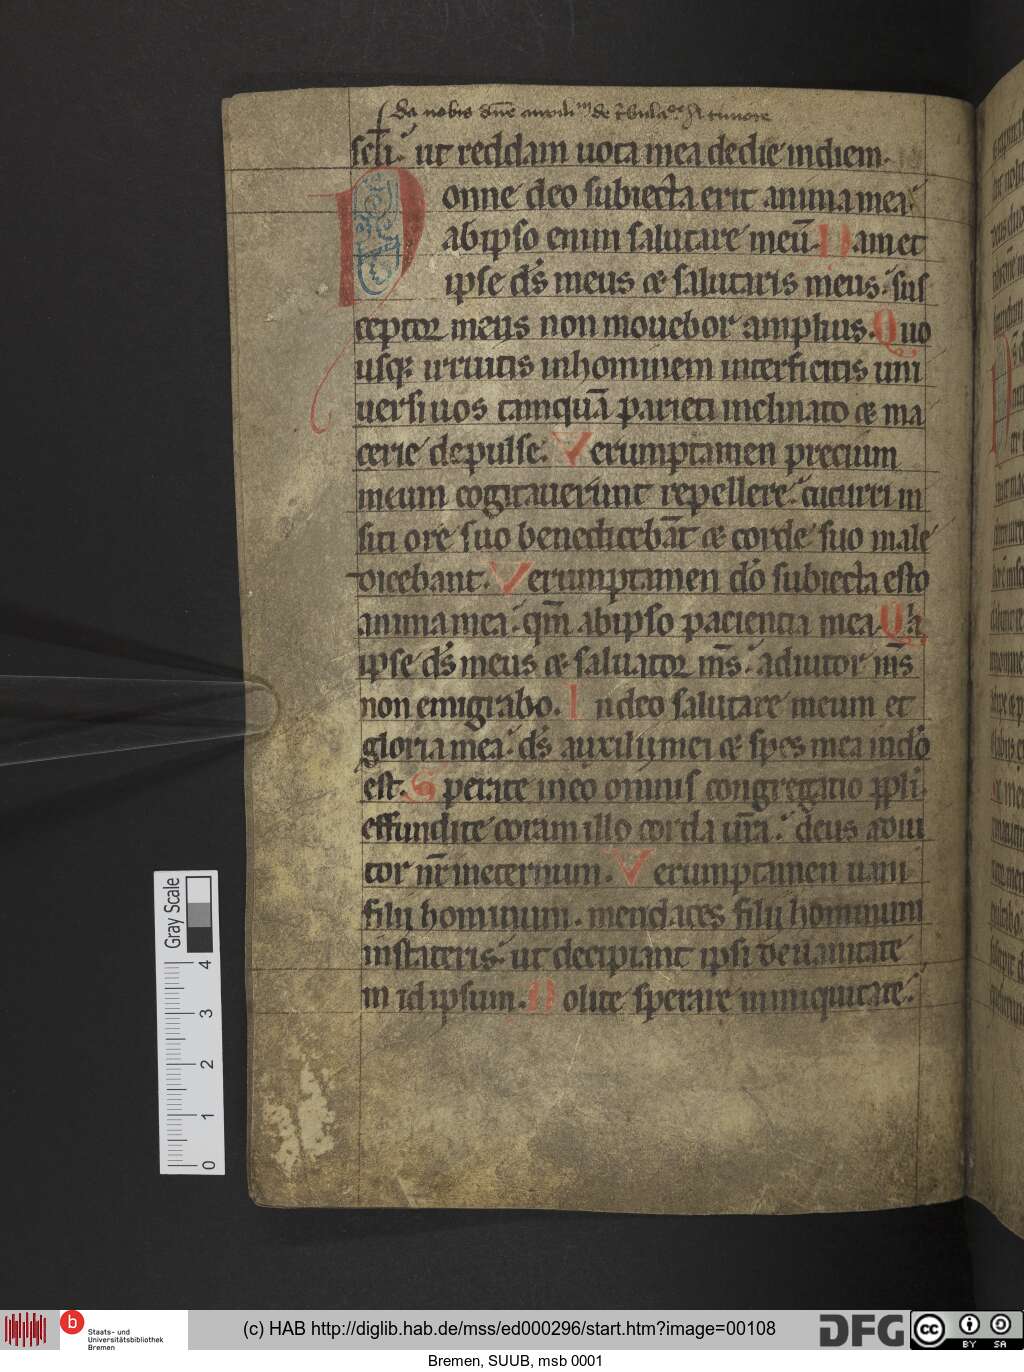 da nobis dn̄e auxiliu᷒ de t̄bulat᷒ et timore
scl̄i ut reddam uota mea de die in diem.
Nonne deo subiecta erit anima mea
ab ipso enim salutare meū. Nam et
ipse ds̄ meus & salutaris meus. sus
ceptor meus non mouebor amplius. Quo
usq; irruitis in hominem interficitis uni
uersi uos tamquā parieti inclinato & ma
cerie depulse. Verumptamen precium
meum cogitauerunt repellere. cucurri in
siti ore suo benedicebāt & corde suo male
dicebant. Verumptamen dō subiecta esto
anima mea. qm̄ ab ipso paciencia mea. Qa
ipse ds̄ meus & saluator ms̄. adiutor ms̄
non emigrabo. In deo salutare meum et
gloria mea. ds̄ auxilij mei & spes mea in dō
est. Sperate in eo omnis congregatio ppl̄i
effundite coram illo corda ur̄a. deus adiu
tor nr̄ in eternum. Verumptamen uani
filij hominum. mendaces filij hominum
in stateris. ut decipiant ipsi de uanitate
in id ipsum. Nolite sperare in iniquitate.
Gray Scale
4
3
2
1
0
b
Staats- und
Universitätsbibliothek
Bremen
(c) HAB http://diglib.hab.de/mss/ed000296/start.htm?image=00108
DFG
cc
BY SA
Bremen, SUUB, msb 0001